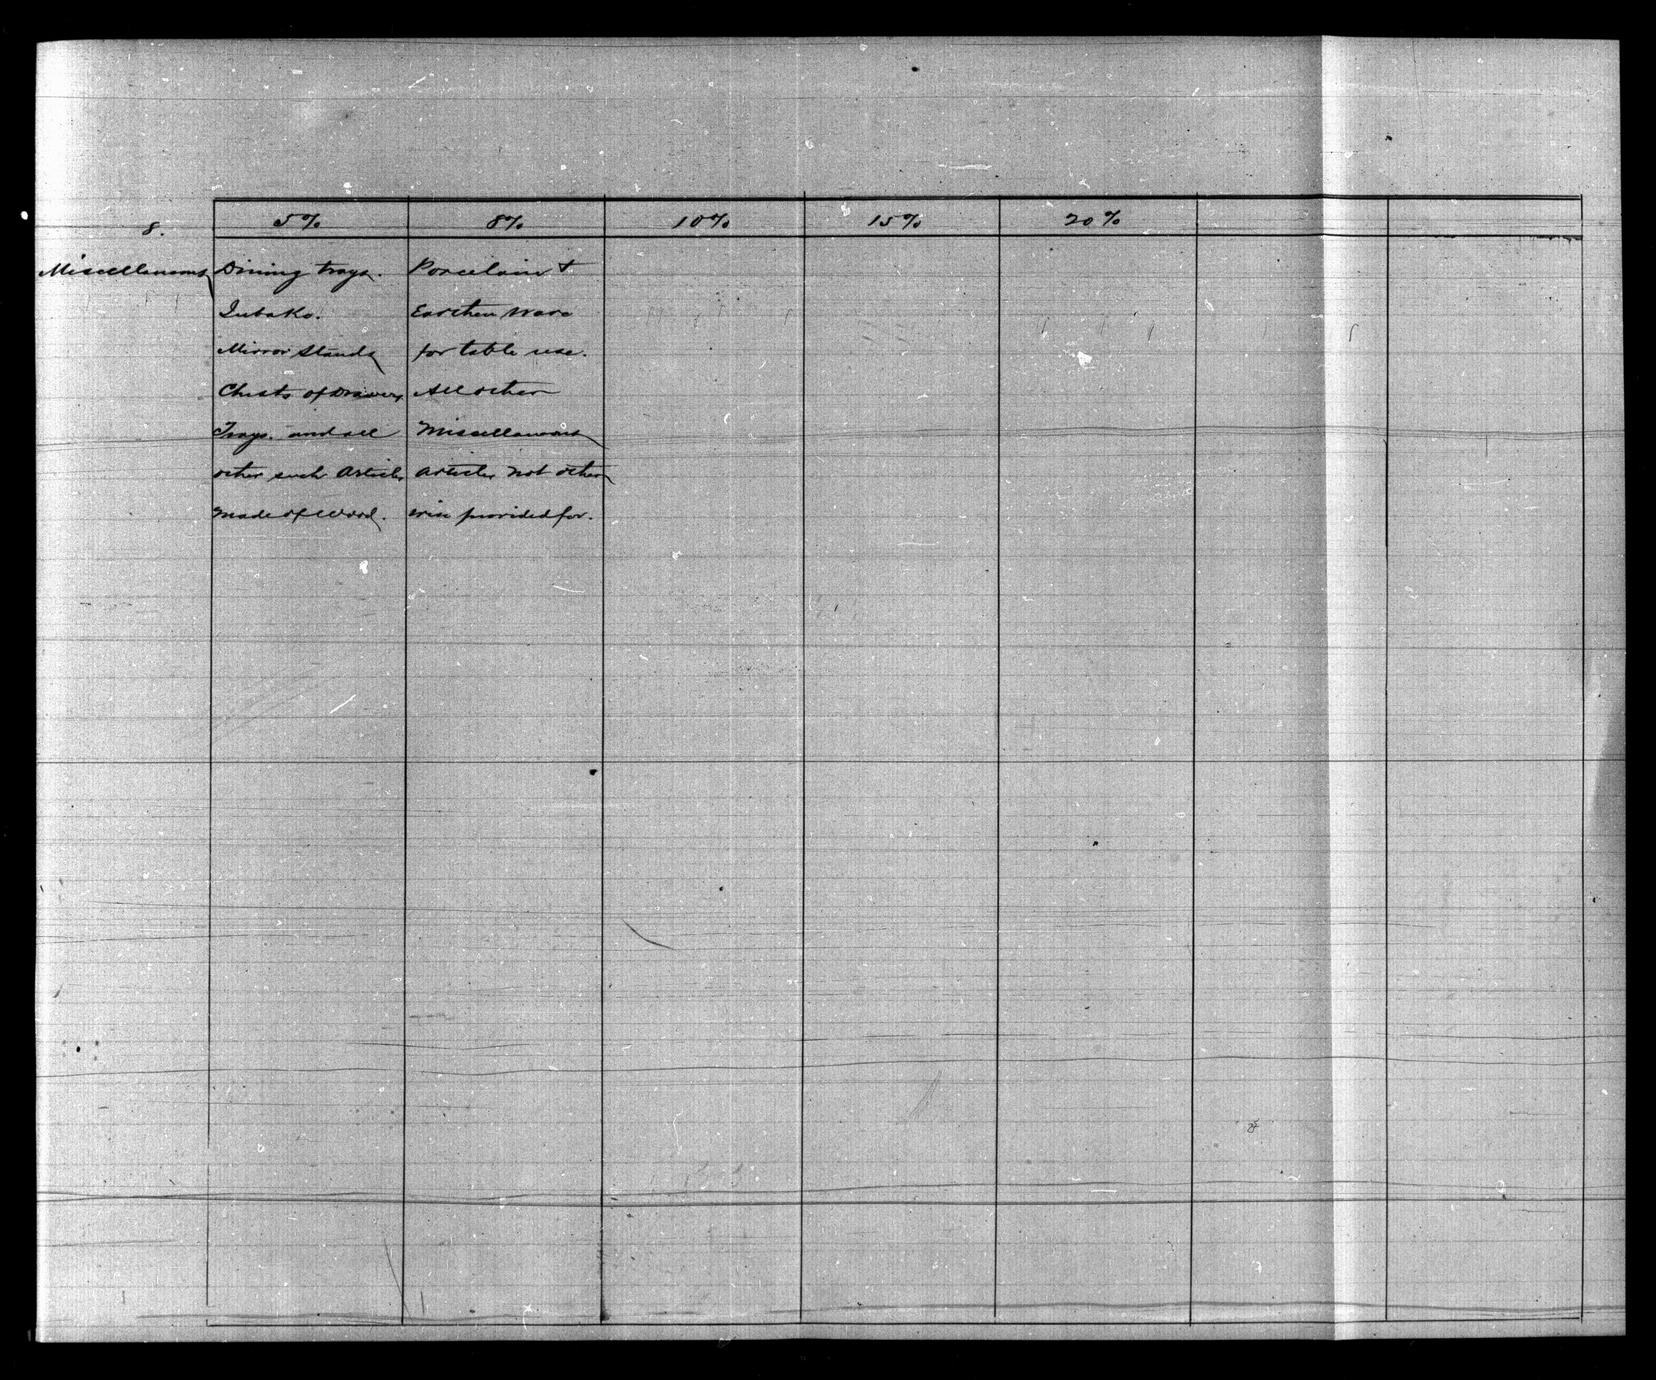 8. 5% 8% 10% 15% 20%
Miscellaneous Dining trays. Porcelain &
Jubako. Earthen Ware
Mirror Stands for table use.
Chests of Drawers All other
Trays. and all Miscellaneous
other such Articles Articles not other
made of Wood. wise provided for.